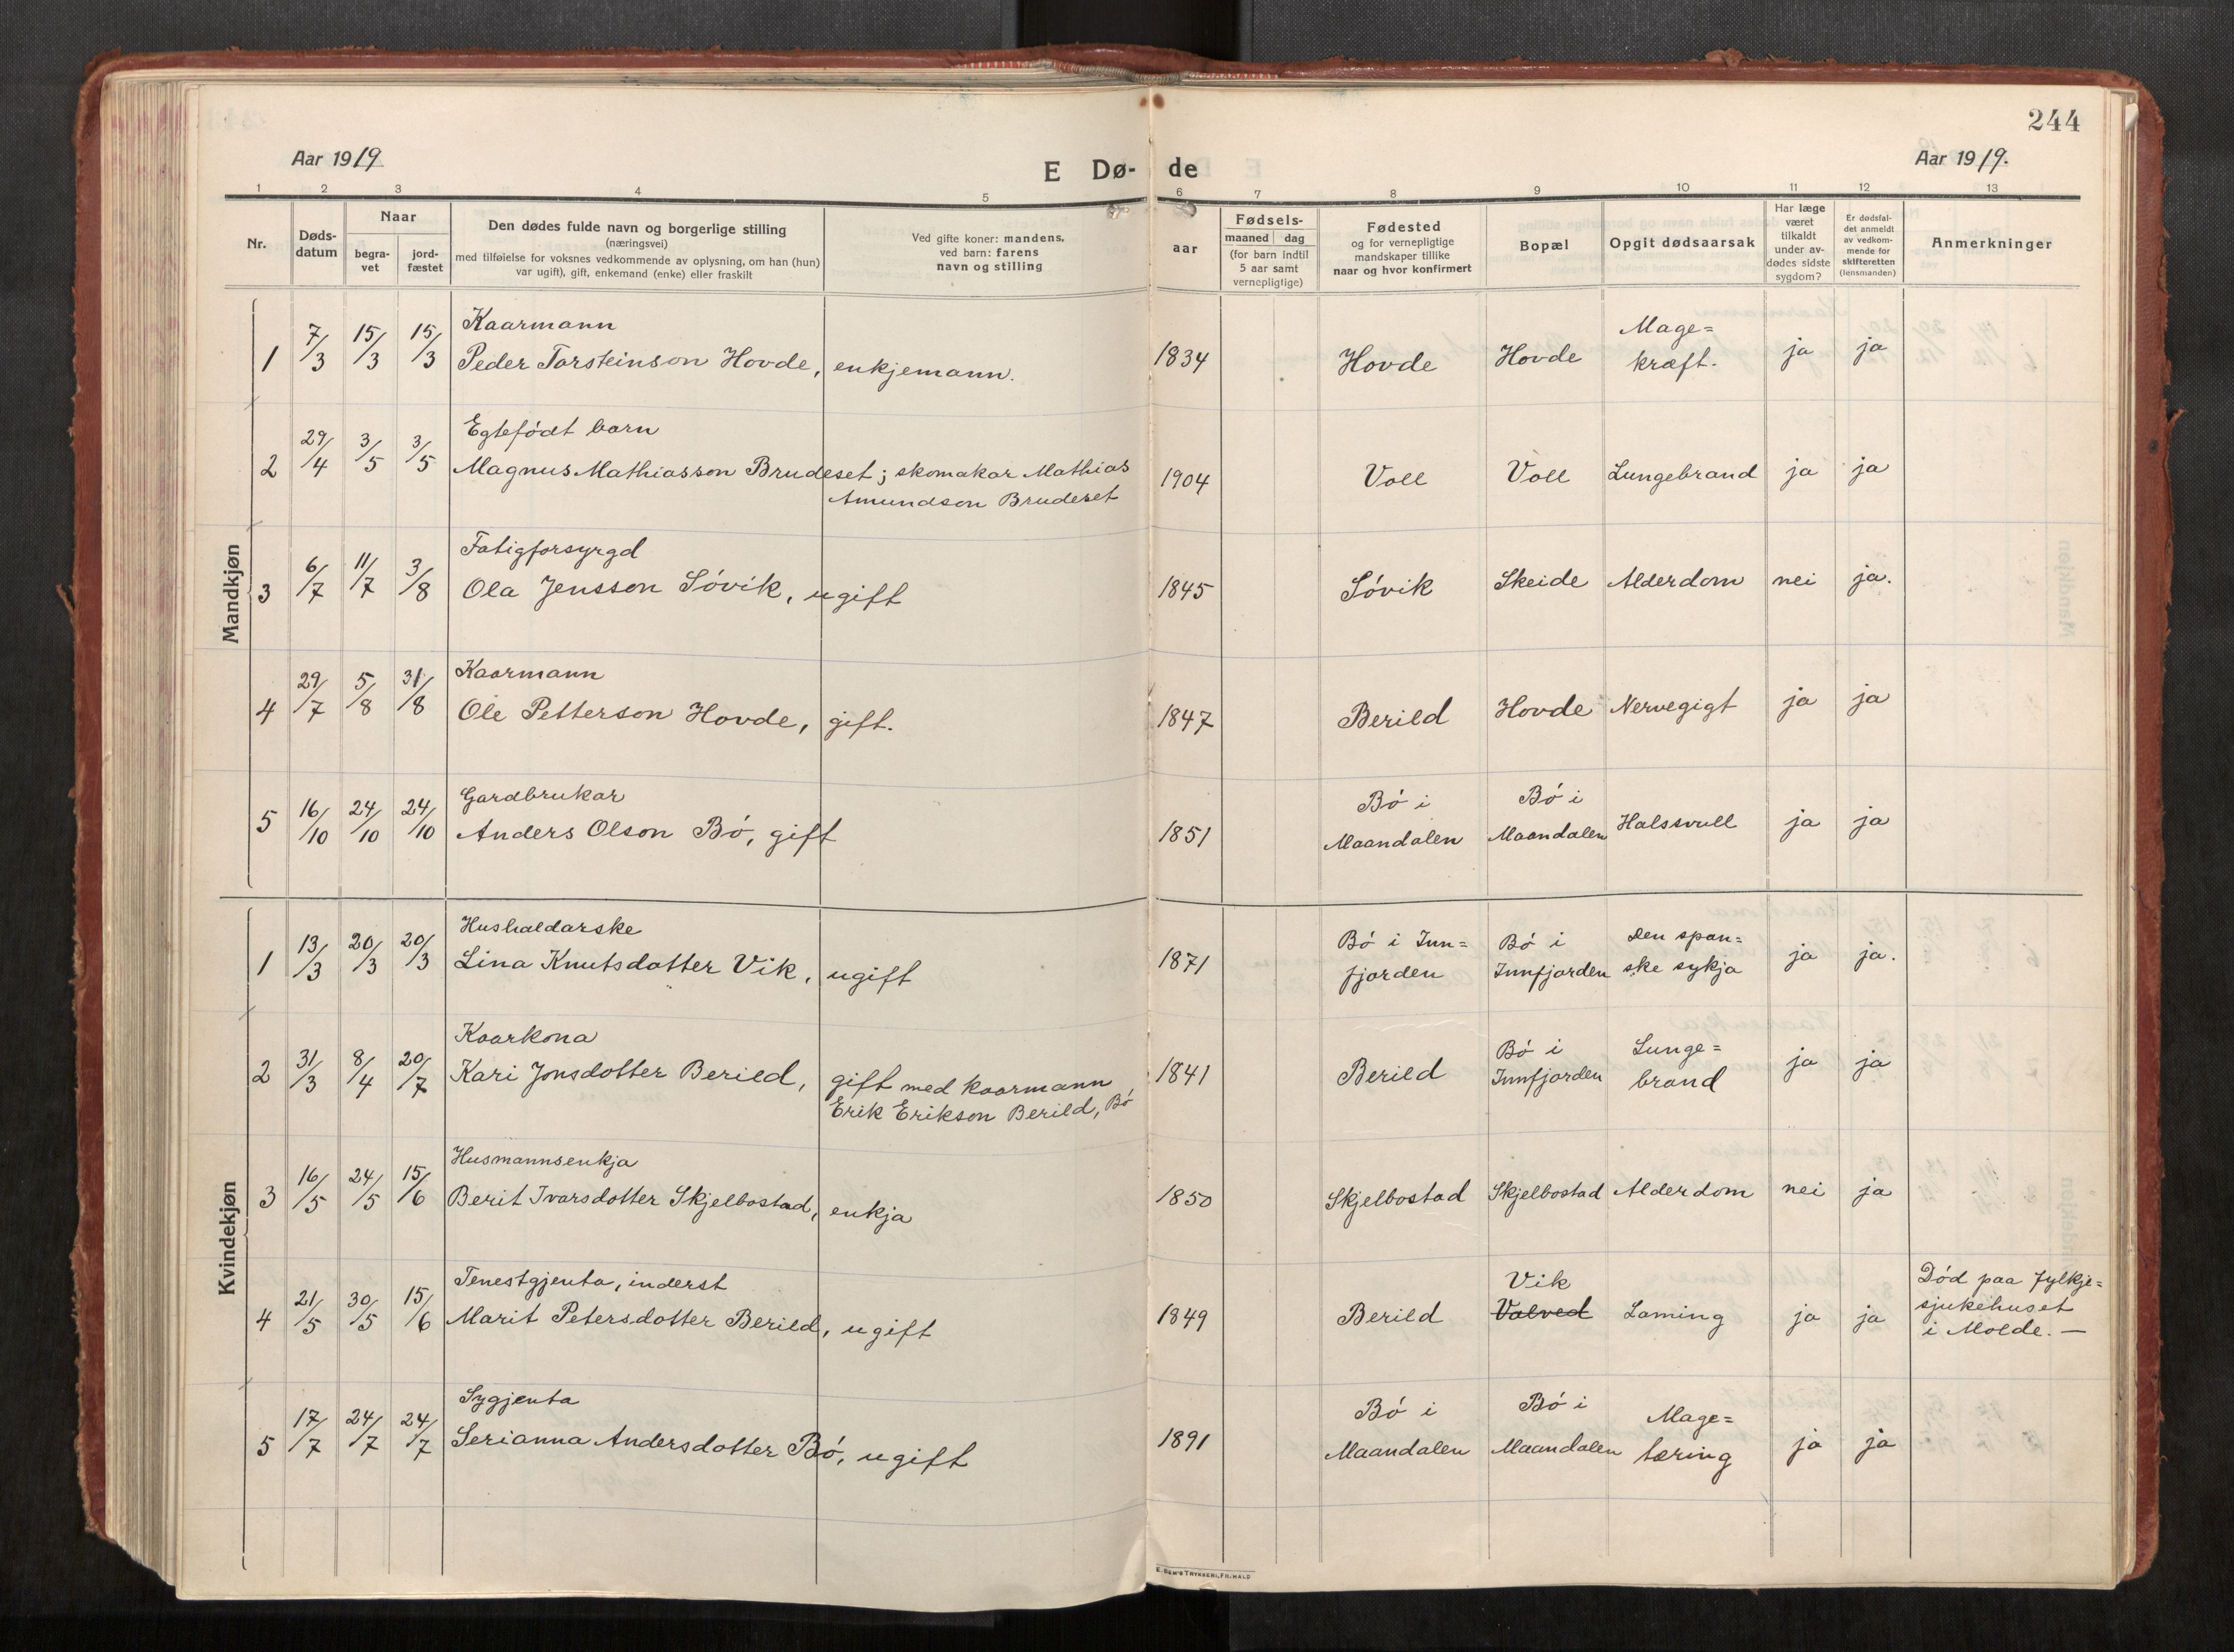 244
Aar 1919
E Dø- de
Aar 1919.
1 2 3 4 5 6 7 8 9 10 11 12 13
Nr.
Døds-
datum
Naar
begra-
vet
jord-
fæstet
Den dødes fulde navn og borgerlige stilling
(næringsvei)
med tilføielse for voksnes vedkommende av oplysning, om han (hun)
var ugift), gift, enkemand (enke) eller fraskilt
Ved gifte koner: mandens,
ved barn: farens
navn og stilling
aar
Fødsels-
maaned dag
(for barn indtil
5 aar samt
vernepligtige)
Fødested
og for vernepligtige
mandskaper tillike
naar og hvor konfirmert
Bopæl
Opgit dødsaarsak
Har læge
været
tilkaldt
under av-
dødes sidste
sygdom?
Er dødsfal-
det anmeldt
av vedkom-
mende for
skifteretten
(lensmanden)
Anmerkninger
Mandkjøn
Kaarmann
1 7/3 15/3 15/3 Peder Torsteinson Hovde, enkjemann. 1834 Hovde Hovde Mage=
kræft. ja ja
Egtefødt barn
2 29/4 3/5 3/5 Magnus Mathiasson Brudeset; skomakar Mathias
Amundson Brudeset 1904 Voll Voll Lungebrand ja ja
Fatigforsyrgd
3 6/7 11/7 3/8 Ola Jensson Søvik, ugift 1845 Søvik Skeide Alderdom nei ja.
Kaarmann
4 29/7 5/8 31/8 Ole Petterson Hovde, gift. 1847 Berild Hovde Nervegigt ja ja
Gardbrukar
5 16/10 24/10 24/10 Anders Olson Bø, gift 1851 Bø i
Maandalen Bø i
Maandalen Halssvull ja ja
Kvindekjøn
Hushaldarske
1 13/3 20/3 20/3 Lina Knutsdotter Vik, ugift 1871 Bø i Inn=
fjorden Bø i
Innfjorden Den span=
ske sykja ja ja.
Kaarkona
2 31/3 8/4 20/7 Kari Jonsdotter Berild, gift med kaarmann
Erik Erikson Berild, Bø 1841 Berild Bø i
Innfjorden Lunge=
brand ja ja
Husmannsenkja
3 16/5 24/5 15/6 Berit Ivarsdotter Skjelbostad, enkja 1850 Skjelbostad Skjelbostad Alderdom nei ja
Tenestgjenta, inderst
4 21/5 30/5 15/6 Marit Petersdotter Berild, ugift 1849 Berild Vik
Volved Laming ja ja Død paa fylkje=
sjukehuset
i Molde. —
Sygjenta
5 17/7 24/7 24/7 Serianna Andersdotter Bø, ugift 1891 Bø i
Maandalen Bø i
Maandalen Mage=
tæring ja ja